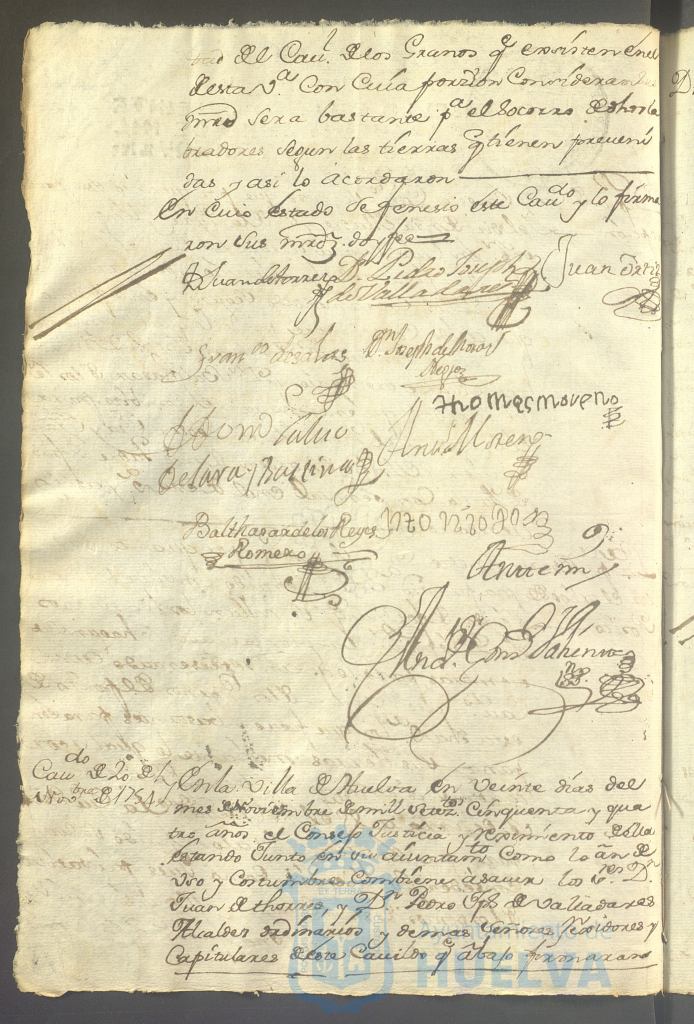 tad del Cau.l de los Granos q.e existen en el
desta V.a con Cuia porzion Consideran sus
mrds sera bastante p.a el Socorro de los la
bradores segun las tierras q.e tienen preveni
das, y asi lo acordaron
En cuio estado se fenesio este Cau.do y lo firma
ron Sus mrdz. doy fee
D. Juan de torres D.n Pedro Joseph Juan Ortiz
de Valladares
Fran.co Rosales D.n Joseph de
thomas moreno
Ant.o Moreno
de Lara y
Balthasar de los Reyes
Romero
Ante mi
Cau.do de 20 de
Nov.bre de 1754
En la Villa de Huelva en veinte dias del
mes de Noviembre de mill setez.tos Cinquenta y qua
tro años el Consejo Justicia y reximiento de ella
estando Junto en su aiuntam.to Como lo an de
Uso y Costumbre Combiene a sauer los S.res D.n
Juan de thorres, y D.n Pedro Jph de Valladares
Alcaldes ordinarios y demas Señores rexidores y
Capitulares deste Cauildo q.e abajo firmaran
HUELVA